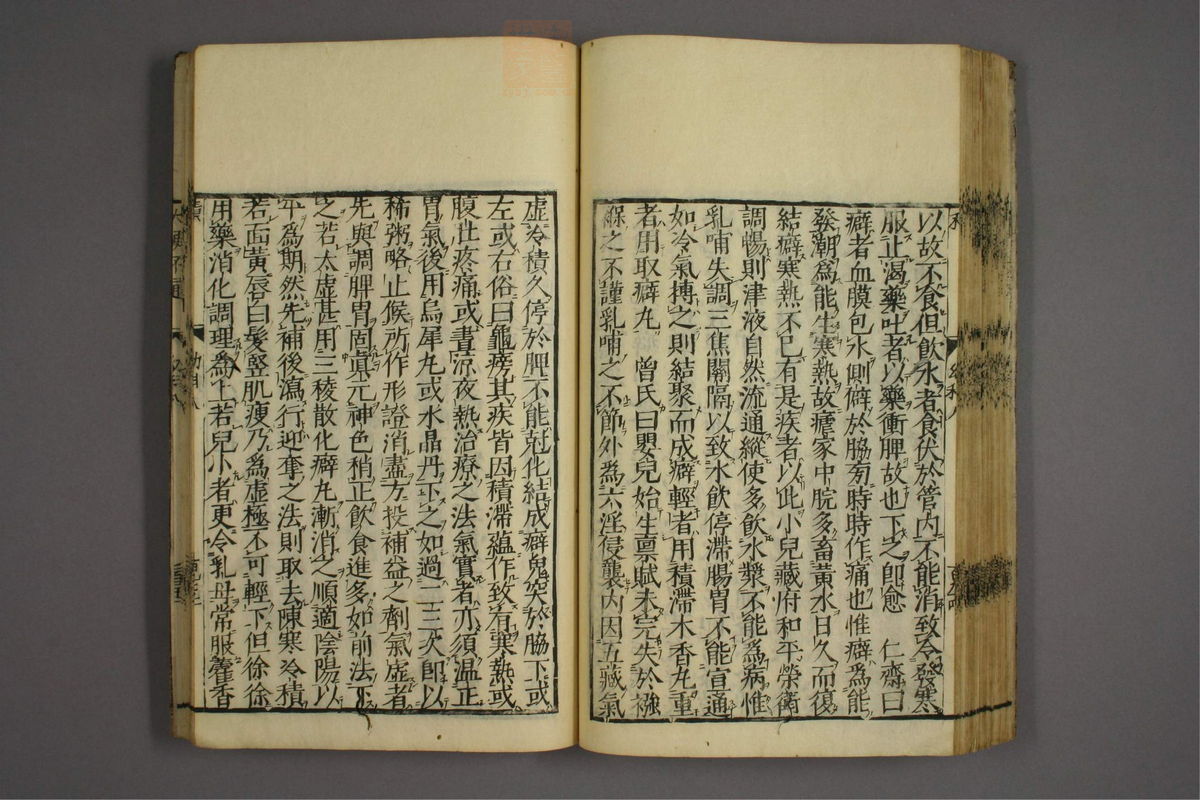 以故不食但飲水者食伏於管内不能消致令發寒
服止渴藥吐者以藥衝脾故也下之即愈　仁齋曰
癖者血膜包水側癖於脇旁時時作痛也惟癖為能
發潮為能生寒熱故瘧家中脘多畜黃水日久而復
結癖寒熱不已有是疾者以此小兒藏府和平榮衛
調暢則津液自然流通縱使多飲水漿不能為病惟
乳哺失調三焦關隔以致水飲停滯腸胃不能宣通
如冷氣搏之則結聚而成癖輕者用積滯木香丸重
者用取癖丸　曾氏曰嬰兒始生禀賦未完失於襁
褓之不謹乳哺之不節外為六淫侵襲内因五藏氣
虛冷積久停於脾不能尅化結成癖突於脇下或
左或右俗曰龜癆其疾皆因積滯蘊作致有寒熱或
腹肚疼痛或晝涼夜熱治療之法氣實者亦須温正
胃氣後用烏犀丸或水晶丹下之如過二三次即以
稀粥略止候所作形證消盡方投補益之劑氣虛者
先與調脾胃固真元神色稍正飲食進多如前法下
之若太虛甚用三稜散化癖丸漸消之順適陰陽以
平為期然先補後瀉行迎奪之法則取去陳寒冷積
若面黃唇白髮竪肌瘦乃為虛極不可輕下但徐徐
用藥消化調理為上若兒小者更令乳母常服藿香